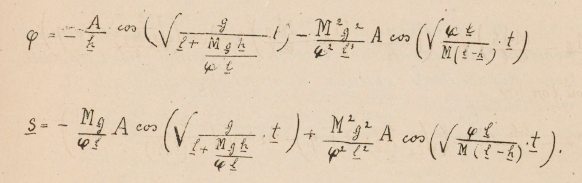 φ = - A/h cos (√ g/(l + Mgh/φl) t) - M²g²/φ²l² A cos (√ φl/M(l-h) · t)
s = - Mg/φl A cos (√ g/(l + Mgh/φl) · t) + M²g²/φ²l² A cos (√ φl/M(l-h) · t).